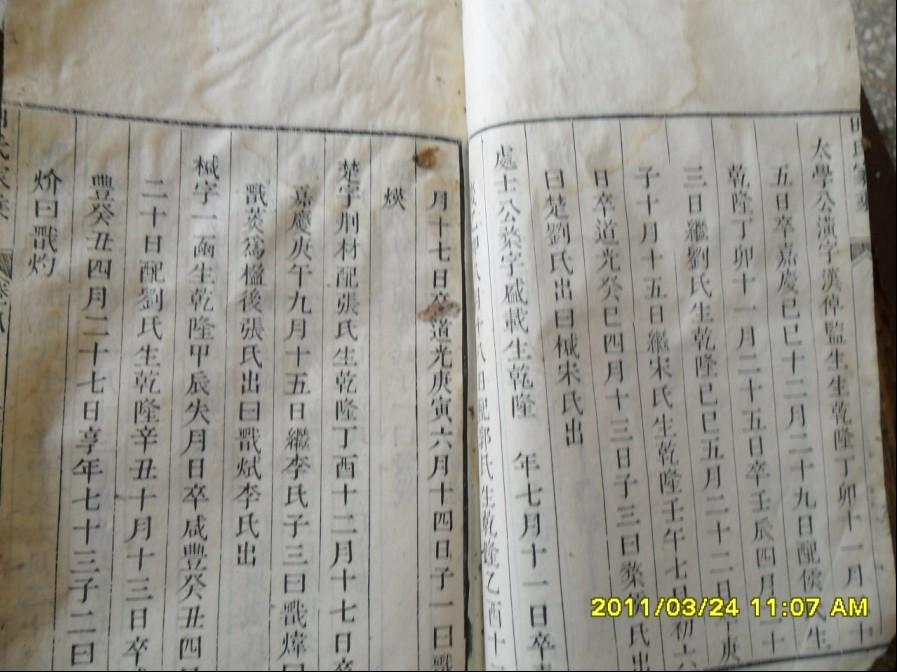 太學公漢字漢倬監生生乾隆丁卯十一月 十
五日卒嘉慶己巳十二月二十九日配侯氏生
乾隆丁卯十一月二十五日卒壬辰四月二十
三日繼劉氏生乾隆己巳五月二十二日 庚
子十月十五日繼宋氏生乾隆壬午七月初六
日卒道光癸巳四月十三日子三曰 氏出
曰楚劉氏出曰棫宋氏出
處士公 字盛載生乾隆 年七月十一日卒
配郭氏生乾隆乙酉十
月十七日卒道光庚寅六月十四日子一曰
煐
楚字荆材配張氏生乾隆丁酉十二月十七日卒
嘉慶庚午九月十五日繼李氏子三曰戩煒曰
戩 為楹後張氏出曰戩斌李氏出
棫字一 生乾隆甲辰失月日卒咸豐癸丑四
二十日配劉氏生乾隆辛丑十月十三日卒
豐癸丑四月二十七日享年七十三子二曰
炌曰戩灼
2011/03/24 11:07 AM